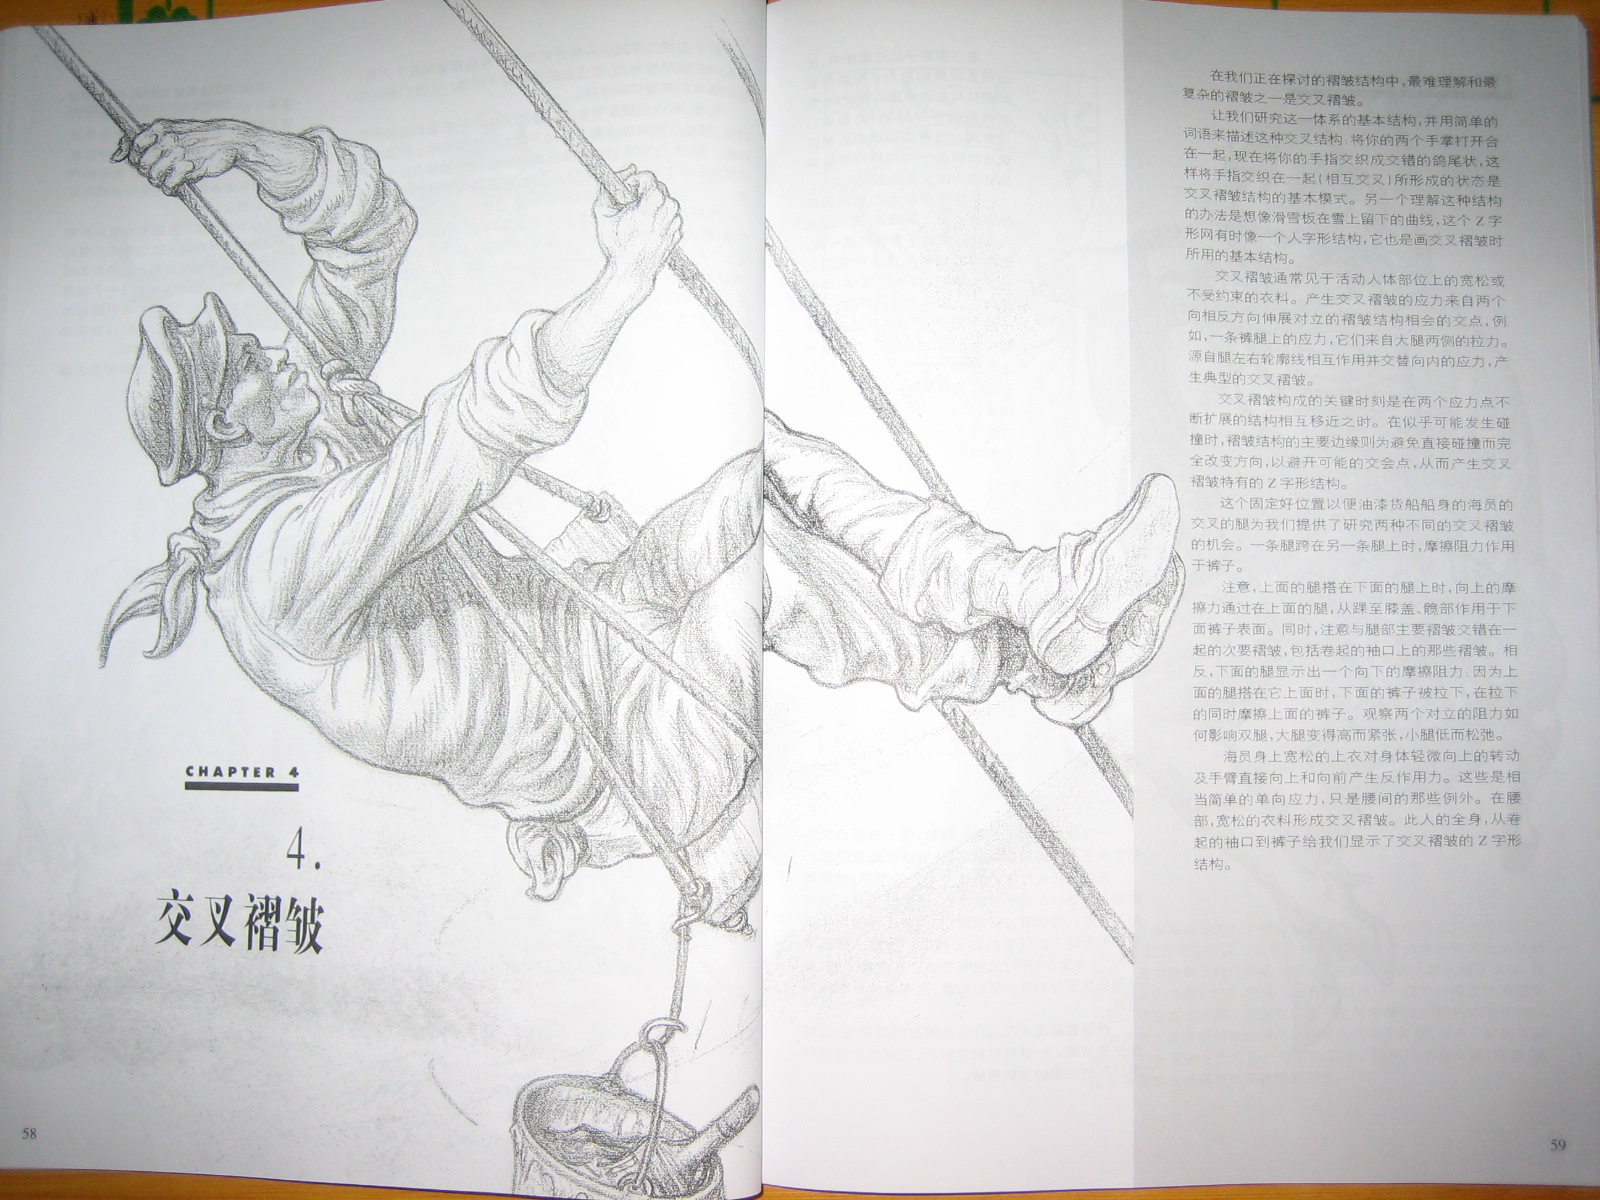 CHAPTER 4
4.
交叉褶皱
58
在我们正在探讨的褶皱结构中,最难理解和最
复杂的褶皱之一是交叉褶皱。
让我们研究这一体系的基本结构,并用简单的
词语来描述这种交叉结构:将你的两个手掌打开合
在一起,现在将你的手指交织成交错的鸽尾状,这
样将手指交织在一起(相互交叉)所形成的状态是
交叉褶皱结构的基本模式。另一个理解这种结构
的办法是想像滑雪板在雪上留下的曲线,这个 Z 字
形网有时像一个人字形结构,它也是画交叉褶皱时
所用的基本结构。
交叉褶皱通常见于活动人体部位上的宽松或
不受约束的衣料。产生交叉褶皱的应力来自两个
向相反方向伸展对立的褶皱结构相会的交点,例
如,一条裤腿上的应力,它们来自大腿两侧的拉力。
源自腿左右轮廓线相互作用并交替向内的应力,产
生典型的交叉褶皱。
交叉褶皱构成的关键时刻是在两个应力点不
断扩展的结构相互移近之时。在似乎可能发生碰
撞时,褶皱结构的主要边缘则为避免直接碰撞而完
全改变方向,以避开可能的交会点,从而产生交叉
褶皱特有的 Z 字形结构。
这个固定好位置以便油漆货船船身的海员的
交叉的腿为我们提供了研究两种不同的交叉褶皱
的机会。一条腿跨在另一条腿上时,摩擦阻力作用
于裤子。
注意,上面的腿搭在下面的腿上时,向上的摩
擦力通过在上面的腿,从踝至膝盖、髋部作用于下
面裤子表面。同时,注意与腿部主要褶皱交错在一
起的次要褶皱,包括卷起的袖口上的那些褶皱。相
反,下面的腿显示出一个向下的摩擦阻力:因为上
面的腿搭在它上面时,下面的裤子被拉下,在拉下
的同时摩擦上面的裤子。观察两个对立的阻力如
何影响双腿,大腿变得高而紧张,小腿低而松弛。
海员身上宽松的上衣对身体轻微向上的转动
及手臂直接向上和向前产生反作用力。这些是相
当简单的单向应力,只是腰间的那些例外。在腰
部,宽松的衣料形成交叉褶皱。此人的全身,从卷
起的袖口到裤子给我们显示了交叉褶皱的 Z 字形
结构。
59